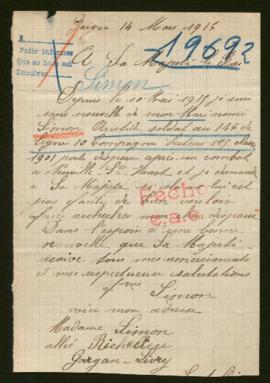 14 Mars 1916
19692
Pedir informes
Que se haga así
Devolver
A Sa Majesté le Roi
Simon
Depuis le 10 Mai 1915 je suis
sans nouvelle de mon Mari nommé
Simon soldat au 146 de
ligne 10 Compagnie Secteur 125 classe
1901 porté disparu après un combat
à Neuville St Vaast et je demande
à Sa Majesté si cela lui est
pas de bien vouloir
faire rechercher mon disparu
Dans l'espoir d'une bonne
nouvelle que Sa Majesté
reçoive tous mes remerciements
et mes respectueuse salutations
Hecho
Simon
voici mon adresse
Madame Simon
allée Richelieu
Gargan-Livry